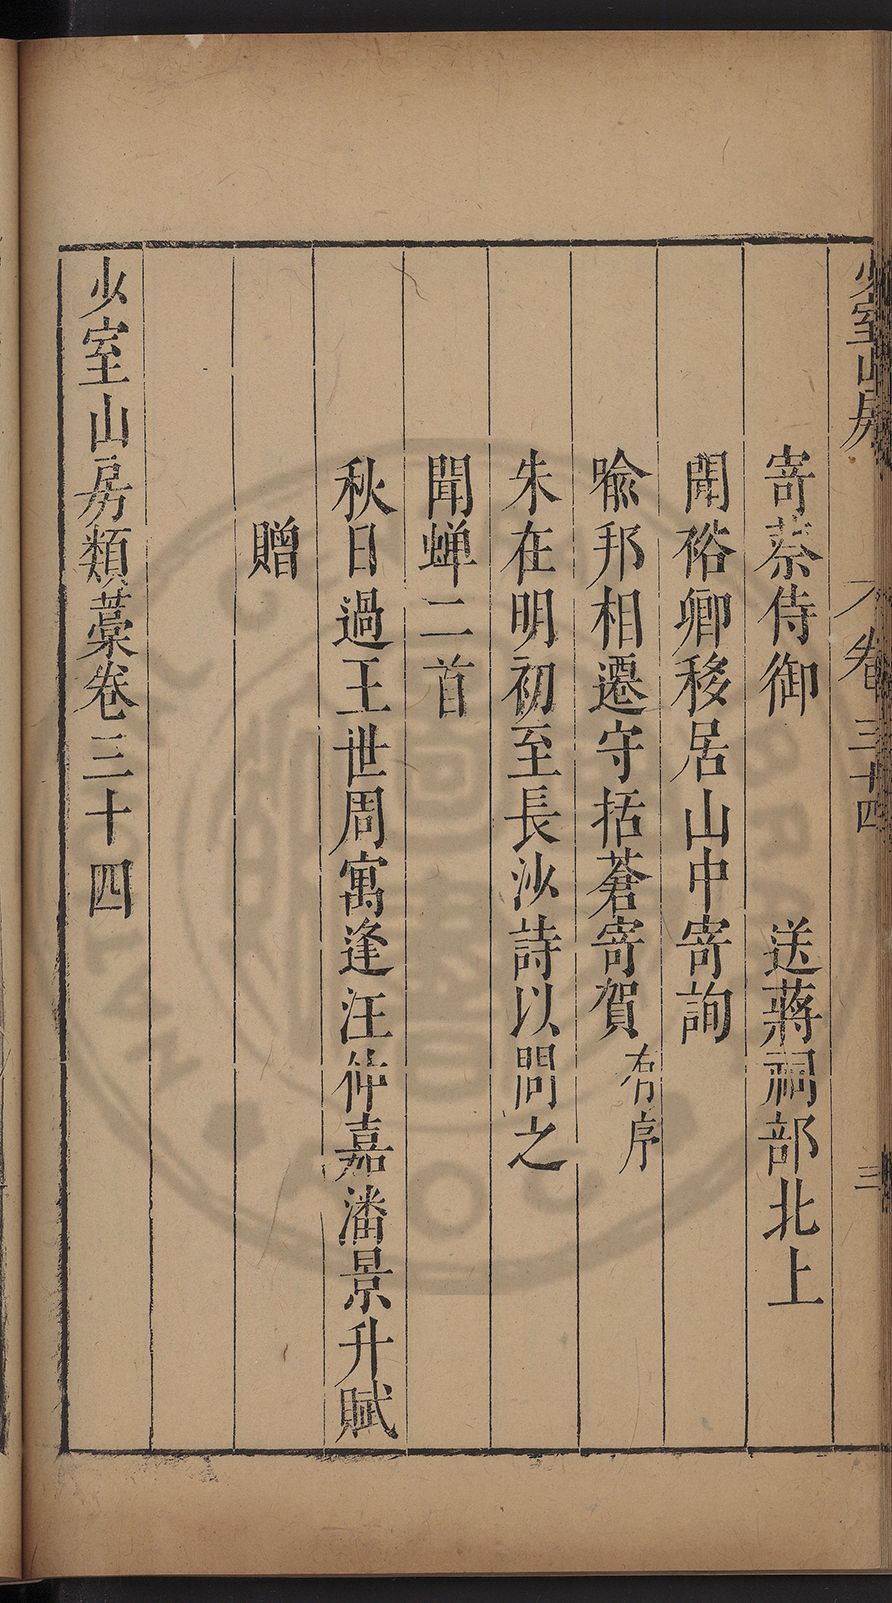 少室山房 卷三十四 三
寄蔡侍御 送蔣祠部北上
聞裕卿移居山中寄詢
喻邦相遷守括蒼寄賀有序
朱在明初至長沙詩以問之
聞蟬二首
秋日過王世周寓逢汪仲嘉潘景升賦
贈
少室山房類藁卷三十四